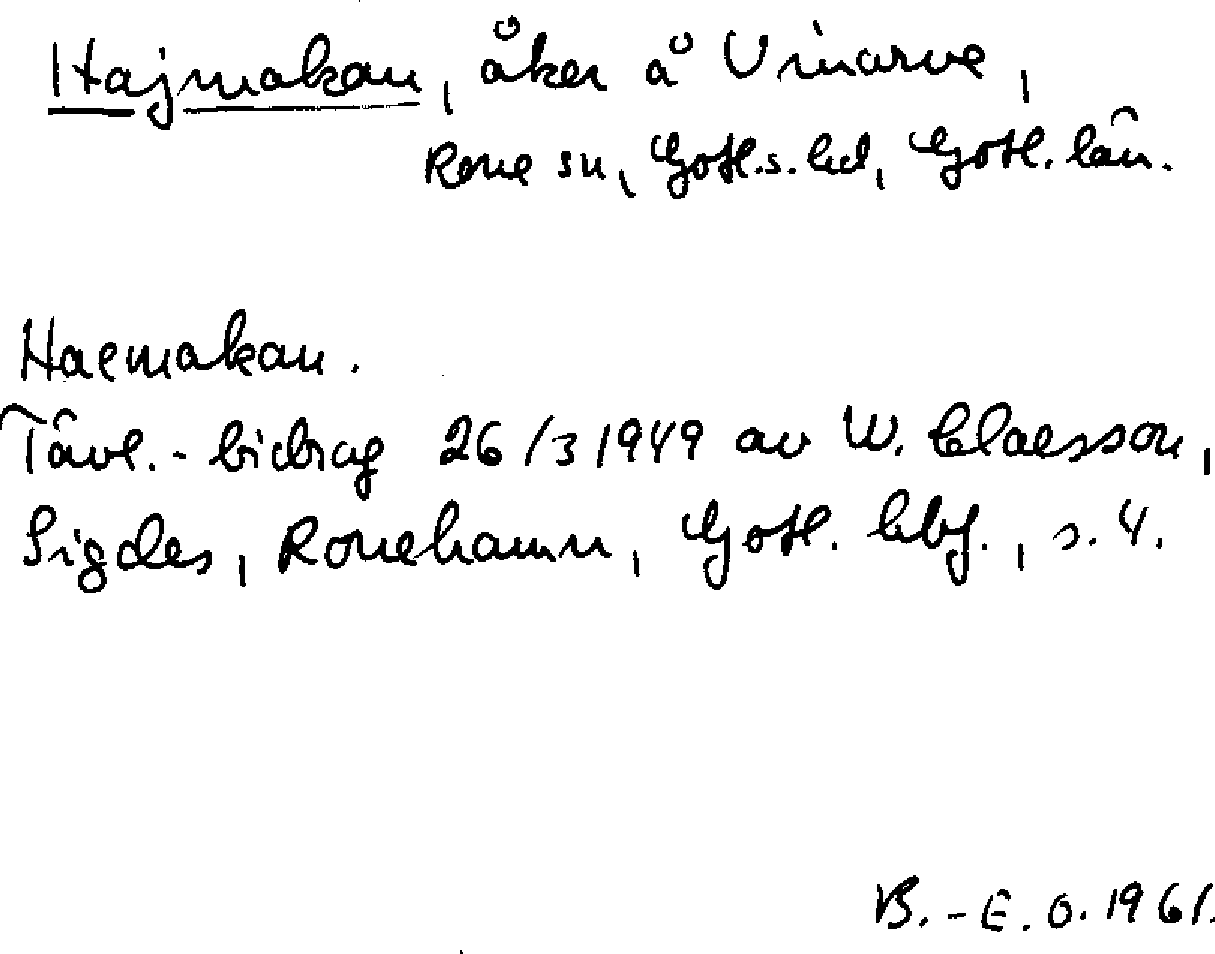 Hajmakan, åker å Uinarve,
Rone sn, Gotl.s. hd, Gotl. län.
Haemakan.
Tävl.-bidrag 26/3 1949 av W. Claesson,
Sigdes, Ronehamn, Gotl. hbf., s. 4.
B.-E. O. 1961.